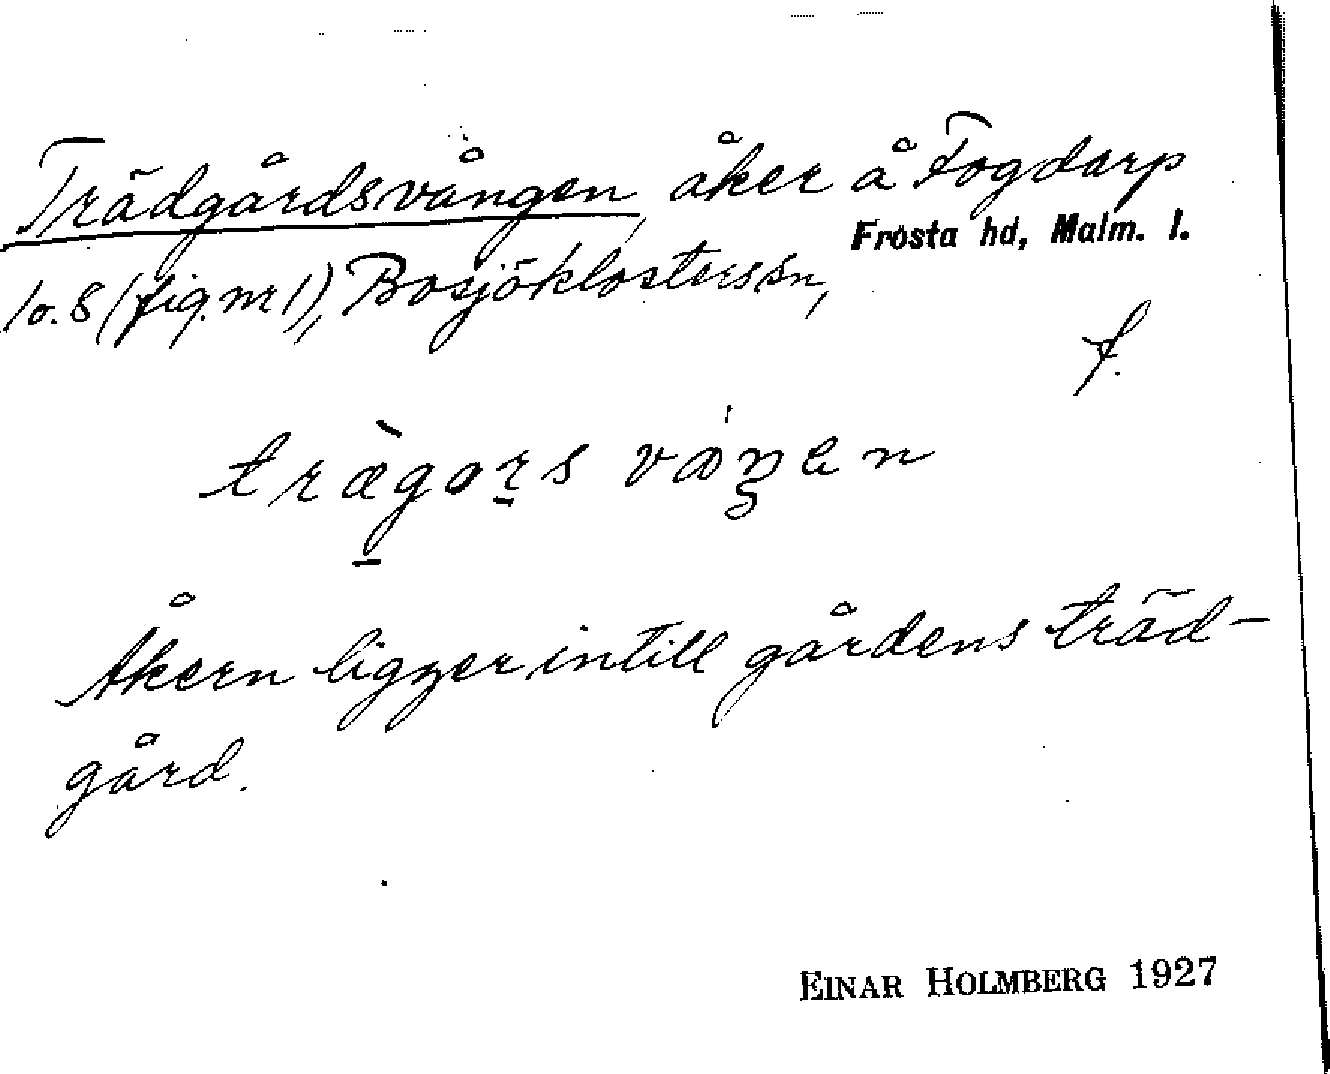 Trädgårdsvången, åker å Fogdarp
Frosta hd, Malm. l.
1o. 8 (fig. nr 1), Bosjöklosters sn,
f.
trægårs vaŋen
Åkern ligger intill gårdens träd-
gård.
EINAR HOLMBERG 1927